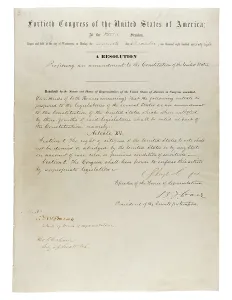 Fortieth Congress of the United States of America;
At the third Session,
A RESOLUTION
Proposing an amendment to the Constitution of the United States.
Resolved by the Senate and House of Representatives of the United States of America in Congress assembled,
(two-thirds of both Houses concurring) that the following article be
proposed to the legislatures of the several States as an amendment
to the Constitution of the United States which, when ratified
by three-fourths of said legislatures shall be valid as part of
the Constitution, namely:
Article XV.
Section 1. The right of citizens of the United States to vote shall
not be denied or abridged by the United States or by any State
on account of race, color, or previous condition of servitude.
Section 2. The Congress shall have power to enforce this article
by appropriate legislation.
Speaker of the House of Representatives.
President of the Senate